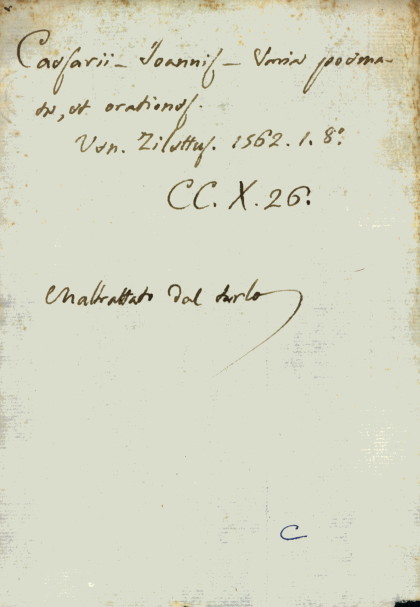 Caesarii - Joannis - Varia poema-
ta, et orationes.
Ven. Zilettus. 1562. 1. 8:
CC. X. 26:
Maltrattato dal tarlo
C